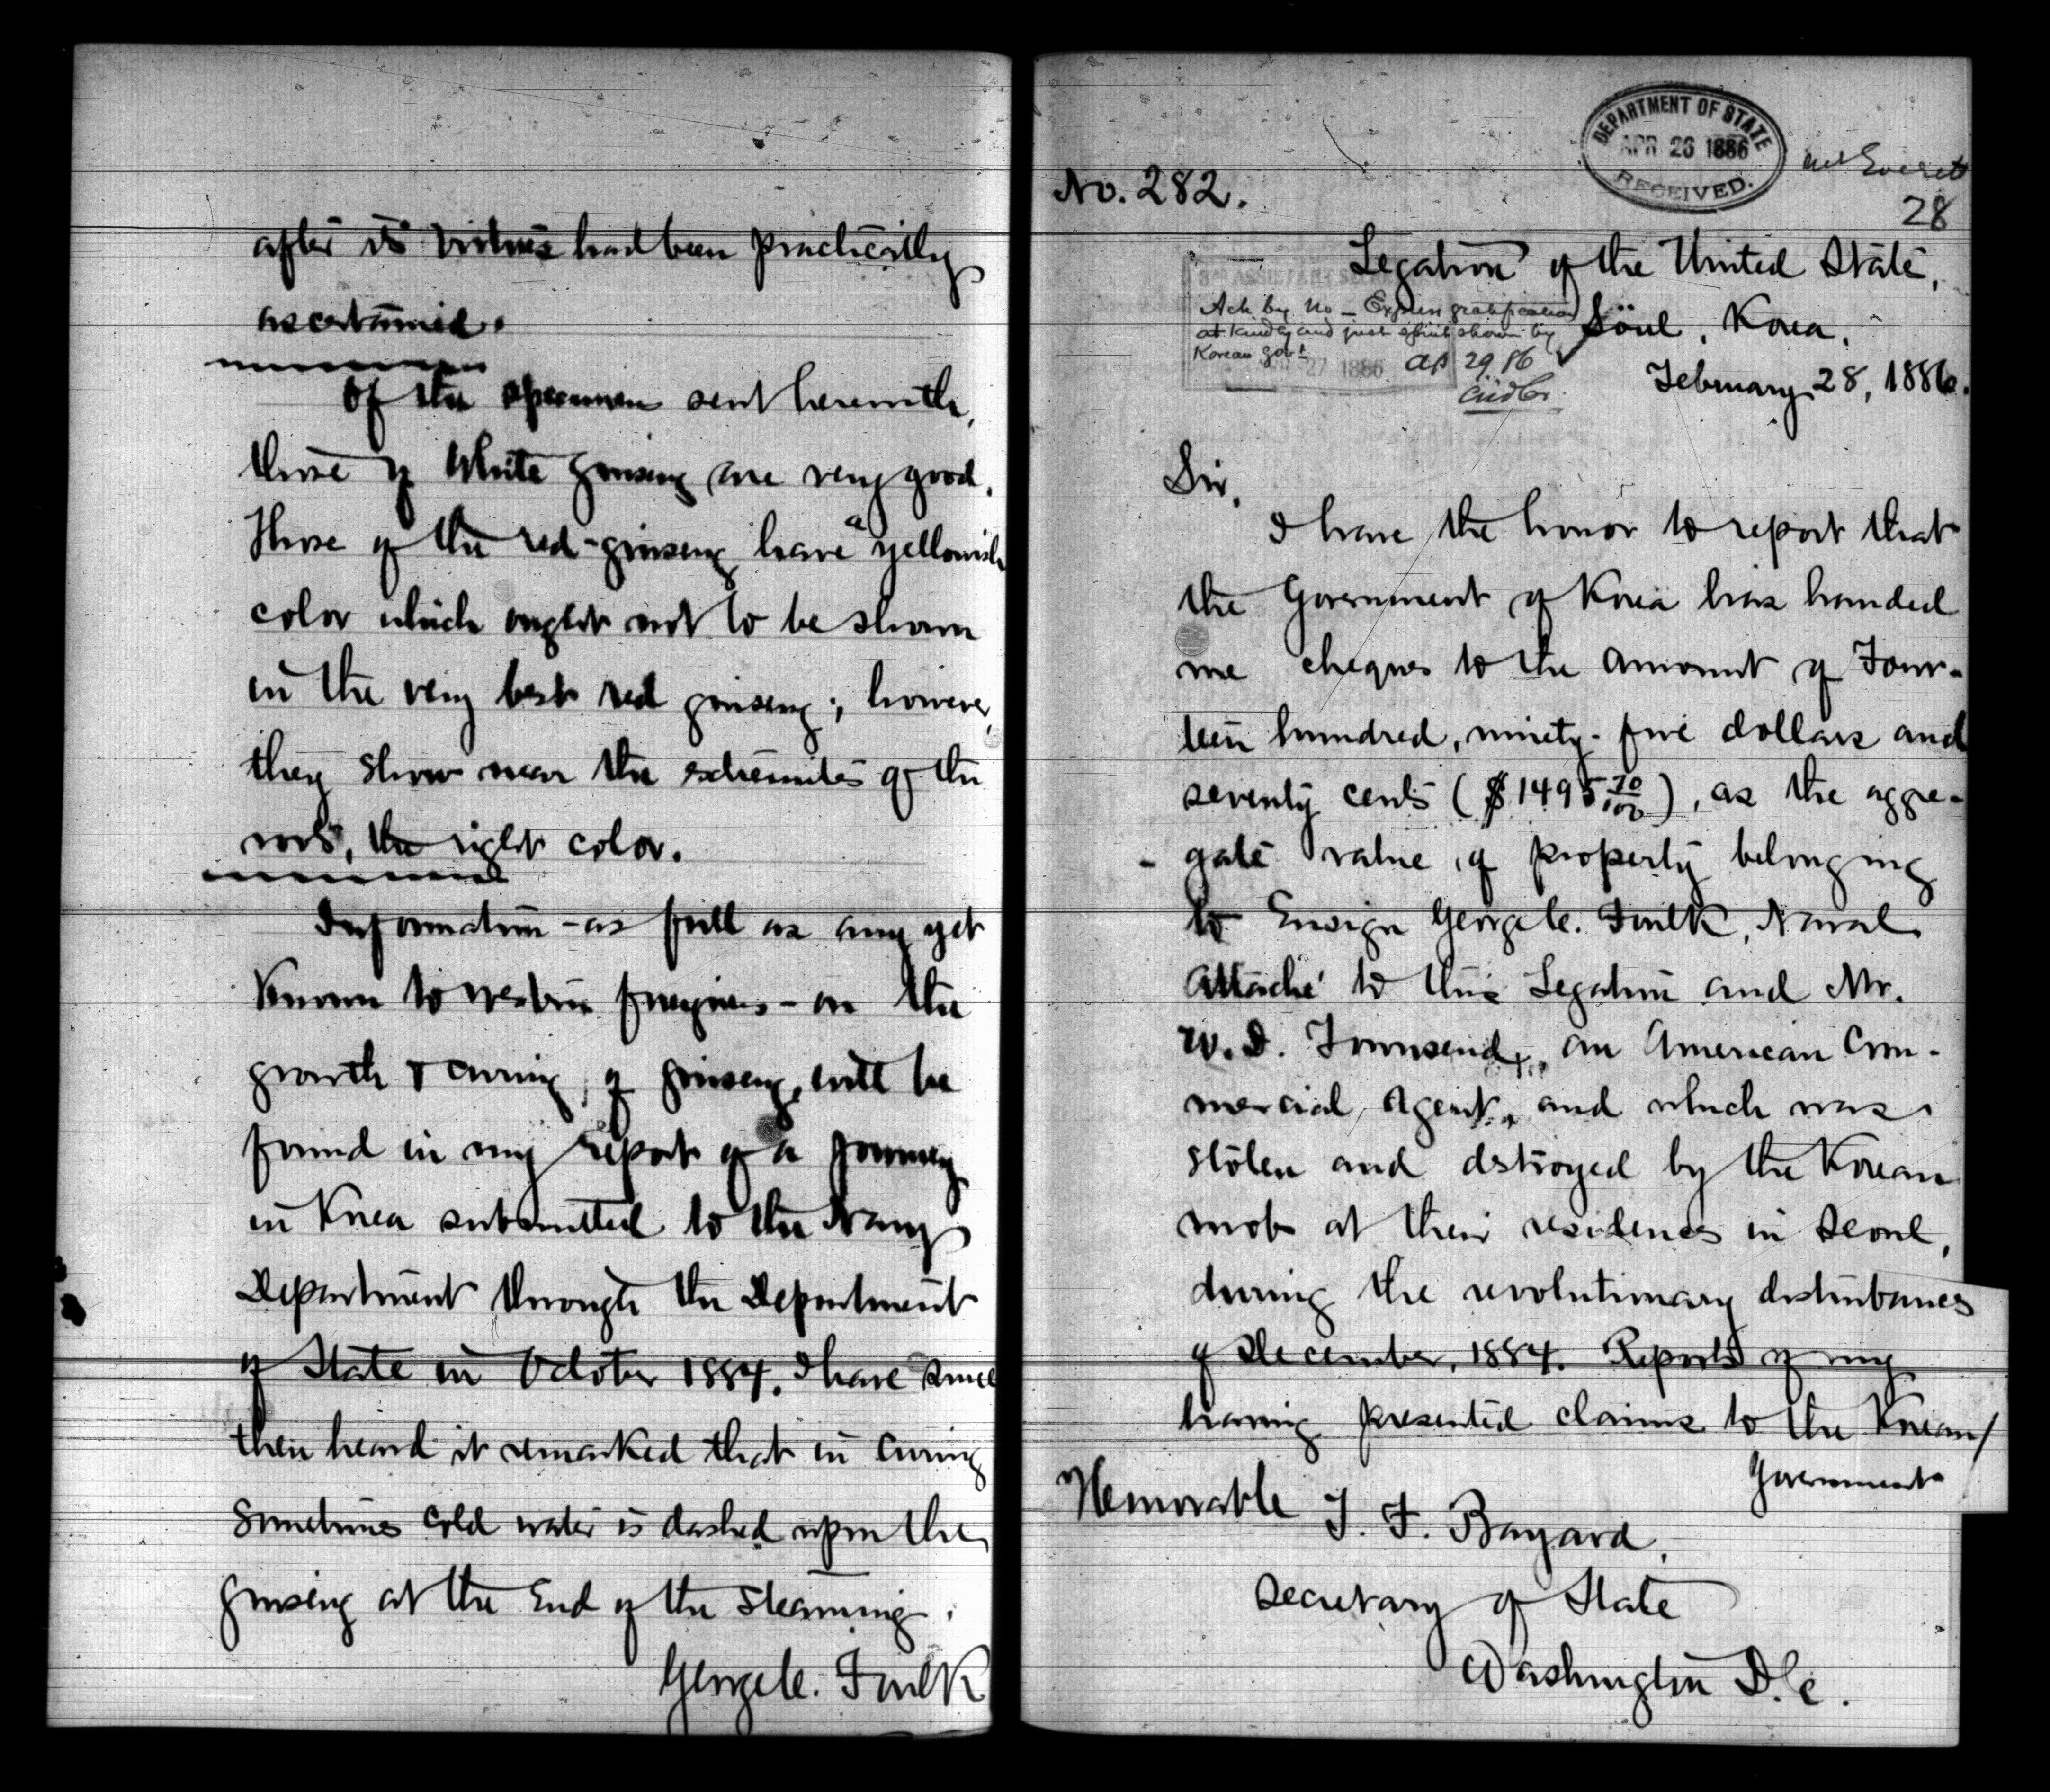 after its virtues had been practically
ascertained.
Of the specimen sent herewith,
those of White ginseng are very good.
Those of the red-ginseng have a yellowish
color which ought not to be shown
in the very best red ginseng; however,
they show near the extremities of the
roots, the right color.
Information - as full as any yet
known to western foreigners - on the
growth & curing of ginseng, will be
found in my report of a journey
in Korea submitted to the Navy
Department through the Department
of State in October 1884. I have since
then heard it remarked that in curing
sometimes cold water is dashed upon the
ginseng at the End of the steaming.
George C. Foulk
DEPARTMENT OF STATE
APR 26 1886
RECEIVED.
No. 282.
28
Legation of the United States,
Söul, Korea,
February 28, 1886.
Ack by No — Express gratification
at kindly and just spirit shown by
Korean Govt
27 1886
Ap 29 86
Sir,
I have the honor to report that
the Government of Korea has handed
me cheques to the amount of Four-
teen hundred, ninety-five dollars and
seventy cents ($1495 70/100), as the aggre-
gate value of property belonging
to Ensign George C. Foulk, Naval
Attaché to this Legation and Mr.
W. D. Townsend, an American Com-
mercial Agent, and which was
stolen and destroyed by the Korean
mob at their residences in Seoul,
during the revolutionary disturbances
of December, 1884. Reports of my
having presented claims to the Korean
Government
Honorable T. F. Bayard,
Secretary of State
Washington D.C.